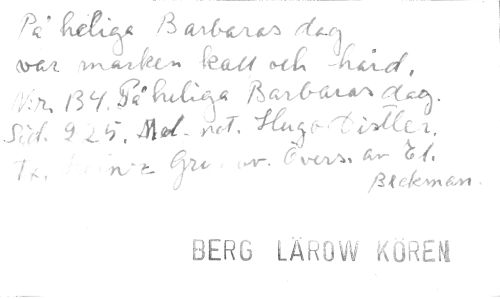 På heliga Barbaras dag
var marken kall och hård.
N:r. 134. På heliga Barbaras dag.
Sid. 225. Mel. not. Hugo Distler.
Tx. Heinz Gru. w. Övers. av El.
Beckman.
BERG LÄROW KÖREN